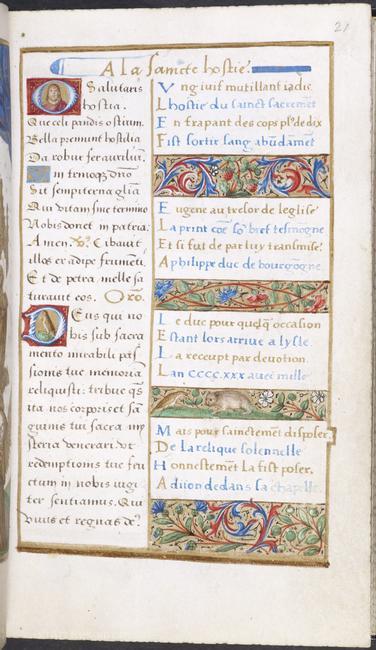 21
A la saincte hostie.
O Salutaris
hostia.
Que celi pandis ostium.
Bella premunt hostilia
Da robur fer auxiliũ.
in trinoq; dño
Sit sempiterna glia
Qui vitam sine termino
Nobis donet in patria.
Amen. V. Cibauit
illos ex adipe frumẽti.
Et de petra melle sa
turauit eos. Oro.
Deus qui no
bis sub sacra
mento mirabili pas
sionis tue memoriã
reliquisti: tribue qs
ita nos corporis et sã
guinis tui sacra my
steria venerari vt
redemptionis tue fru
ctum in nobis iugi
ter sentiamus. Qui
viuis et regnas dẽ.
Vng iuif mutillant iadis
Lhostie du sainct sacremẽt
En frapant des cops pl9 de dix
Fist sortir sang abũdãmẽt
Eugene au tresor de leglise
La print cõe sõ bref tesmogne
Et si fut de par luy transmise.
A philippe duc de bourgõgne
Le duc pour quelq; occasion
Estant lors arriue a lysle
La receupt par deuotion
Lan CCCC.xxx auec mille
Mais pour sainctemẽt disposer
De la relique solennelle
Honnestemẽt la fist poser,
A diion dedans sa chapelle